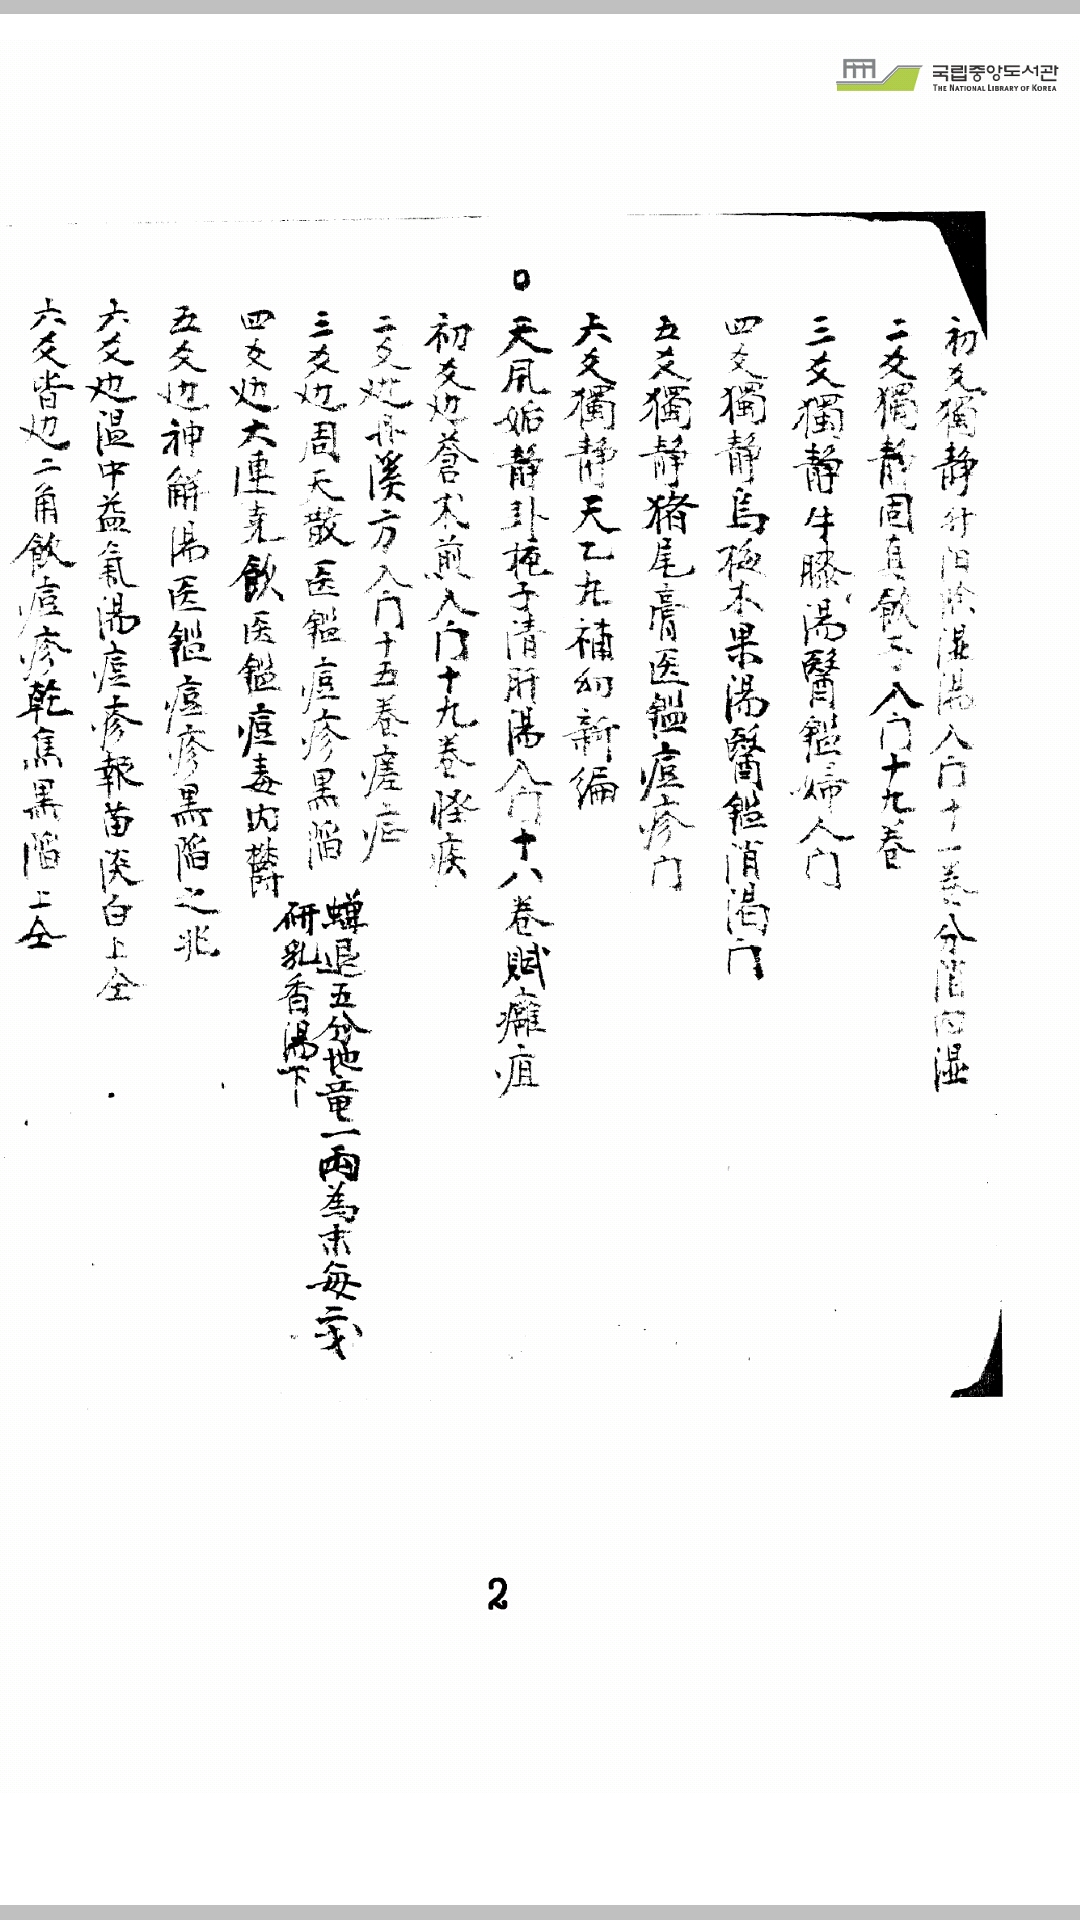 국립중앙도서관
THE NATIONAL LIBRARY OF KOREA
初爻獨静升陽除湿湯入门十一卷分消内湿
二爻獨静固真飮子入门十九卷
三爻獨静牛膝湯醫鑑婦人门
四爻獨静烏梅木果湯醫鑑消渴门
五爻獨静猪尾膏医鑑痘疹门
六爻獨静天乙丸補幼新編
天風姤静卦梔子清肝湯入门十八卷賦癰疽
初爻边蒼朮煎入门十九卷怪疾
二爻边丹溪方入门十五卷瘧疟
三爻边周天散医鑑痘疹黒陥
蟬退五分地竜一兩為末每二戔
研乳香湯下
四爻边大連翹飮医鑑痘毒内欝
五爻边神觧湯医鑑痘疹黒陥之兆
六爻边温中益氣湯痘疹報苗淡白上仝
六爻皆边二角飮痘疹乾焦黒陥上仝
2